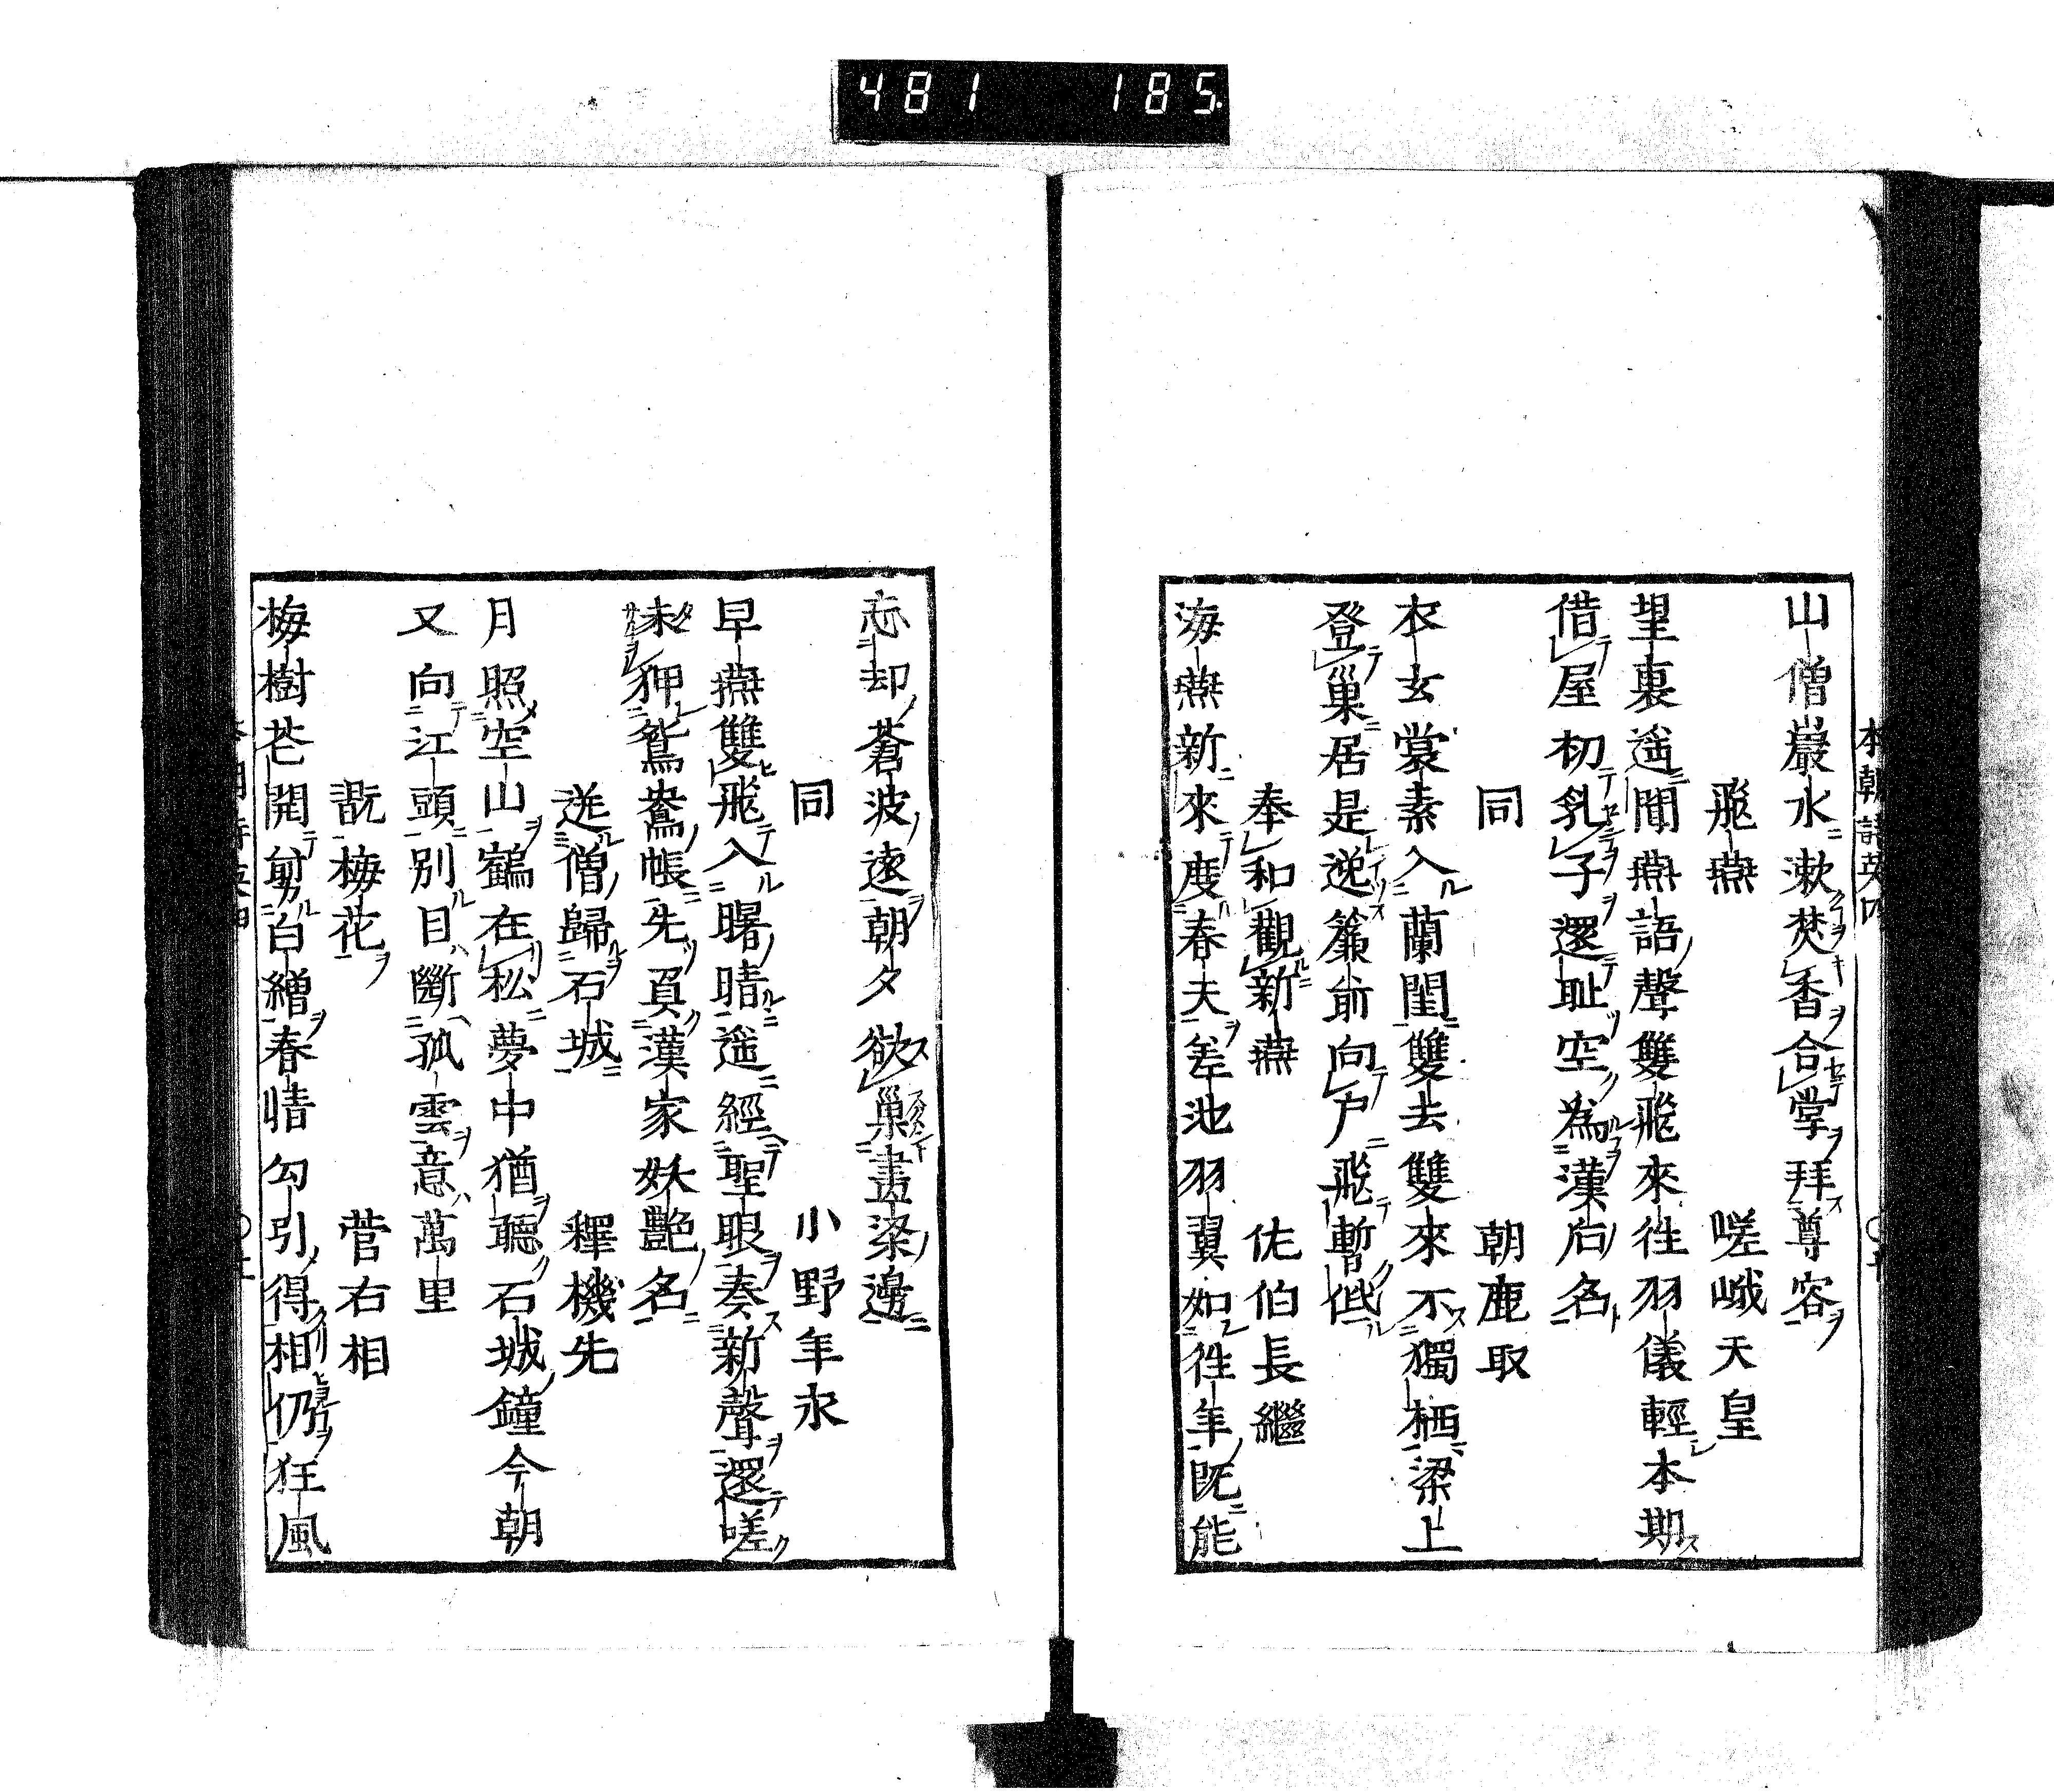 481 185
本朝詩英四
山僧巖水漱焚香合掌拜尊容
飛燕 嵯峨天皇
望裏遙聞燕語聲雙飛來往羽儀輕本期
借屋初乳子還耻空爲漢后名
同 朝鹿取
衣玄裳素入蘭閨雙去雙來不獨栖梁上
登巢居是逆簾前向戶飛暫低
奉和觀新燕 佐伯長繼
海燕新來度春天差池羽翼如往年既能
忘却蒼波遠朝夕欲巢畫梁邊
同 小野年永
早燕雙飛入曙晴遙經聖眼奏新聲還嗟
未狎鴛鴦帳先負漢家妖艷名
送僧歸石城 釋機先
月照空山鶴在松夢中猶聽石城鐘今朝
又向江頭別目斷孤雲意萬里
翫梅花 菅右相
梅樹花開剪白繒春情勾引得相仍狂風